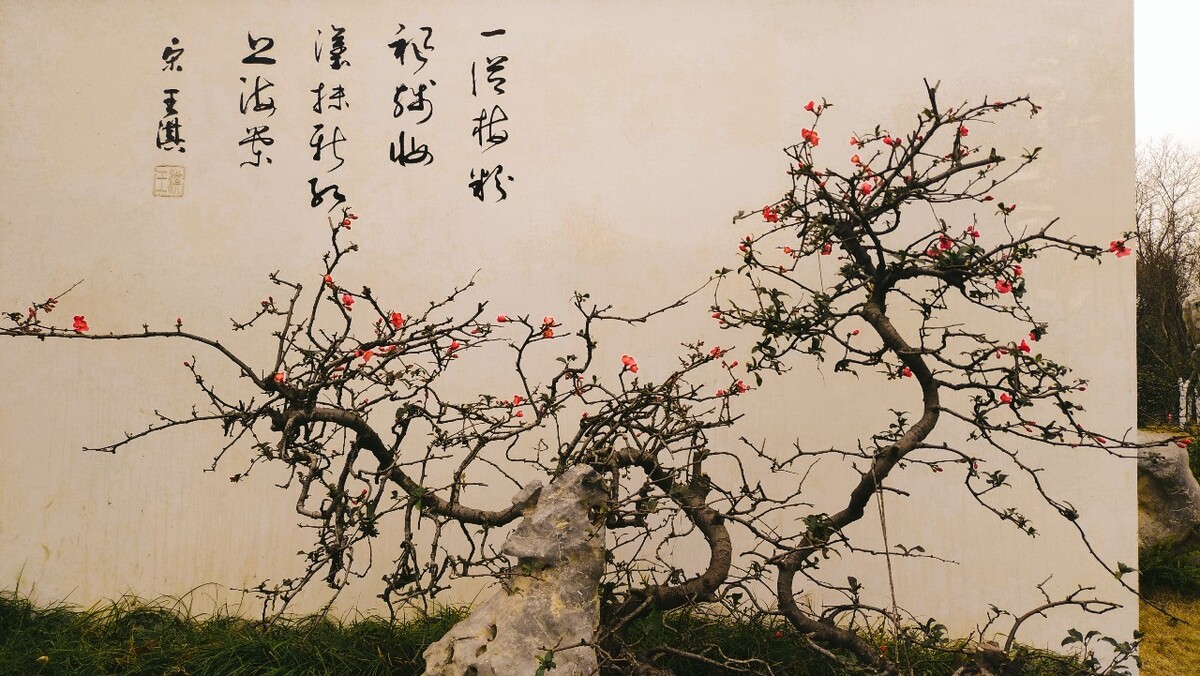 一從梅粉
褪殘妝
塗抹新紅
上海棠
宋 王淇
王淇